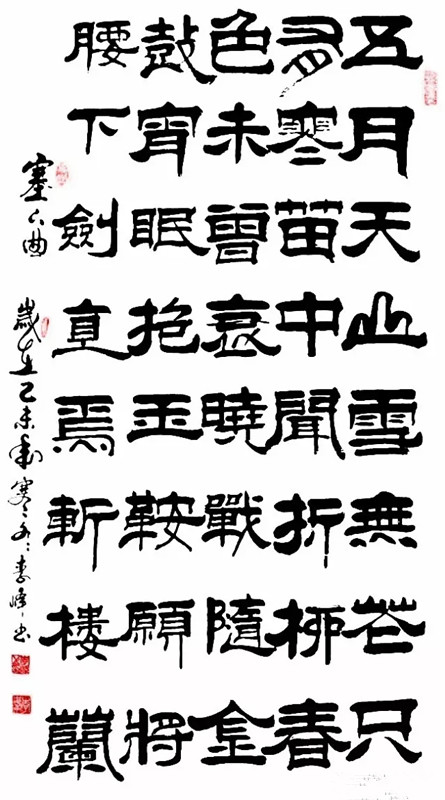 五月天山雪無花只
有寒笛中聞折柳春
色未曾衰曉戰隨金
鼓宵眠抱玉鞍願將
腰下劍直焉斬樓蘭
塞下曲
歲在己未寒冬李峰書